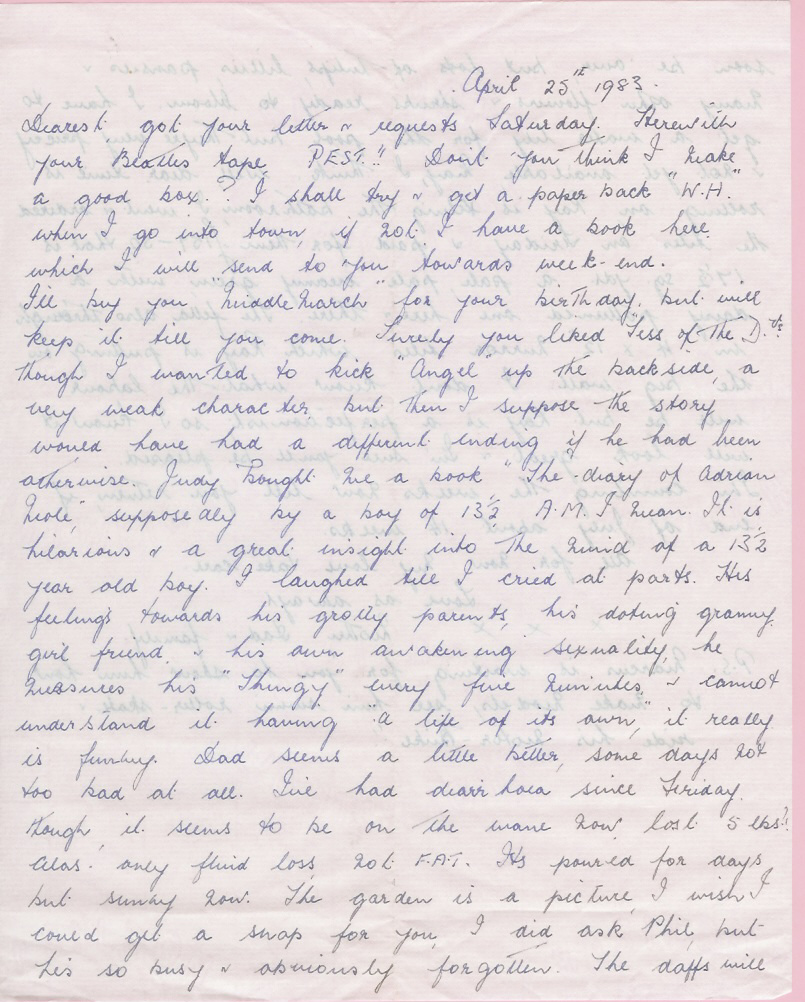 April 25th 1983.
Dearest, got your letter & requests Saturday. Herewith
your Beatles tape, PEST!! Don't you think I make
a good box.? I shall try & get a paper back "W.H."
when I go into town, if not I have a book here
which I will send to you towards week-end.
I'll buy you "MiddleMarch" for your birthday, but will
keep it till you come. Surely you liked "Tess of the D.'s
though I wanted to kick "Angel up the backside, a
very weak character but then I suppose the story
would have had a different ending if he had been
otherwise. Judy bought me a book "The diary of Adrian
Mole," supposedly by a boy of 13½ A.M. I mean. It is
hilarious & a great insight into the mind of a 13½
year old boy. I laughed till I cried at parts. His
feelings towards his grotty parents, his doting granny,
girl friend, & his own awakening sexuality, he
measures his "Thingy" every five minutes, & cannot
understand it having "a life of its own," it really
is funny. Dad seems a little better, some days not
too bad at all. I've had diarrhoea since Friday
though, it seems to be on the wane now, lost 5 lbs!!
alas. only fluid loss, not F.A.T. Its poured for days
but sunny now. The garden is a picture, I wish I
could get a snap for you, I did ask Phil, but
he's so busy & obviously forgotten. The daffs will